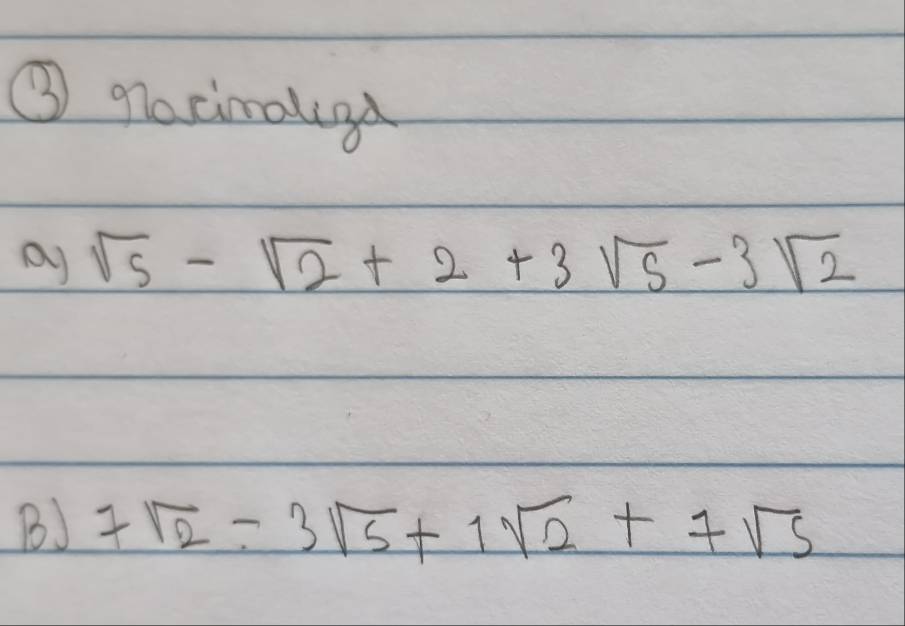 ③ Racimaliza
a) √5 - √2 + 2 + 3 √5 - 3 √2
B) 7 √2 - 3 √5 + 1 √2 + 7 √5